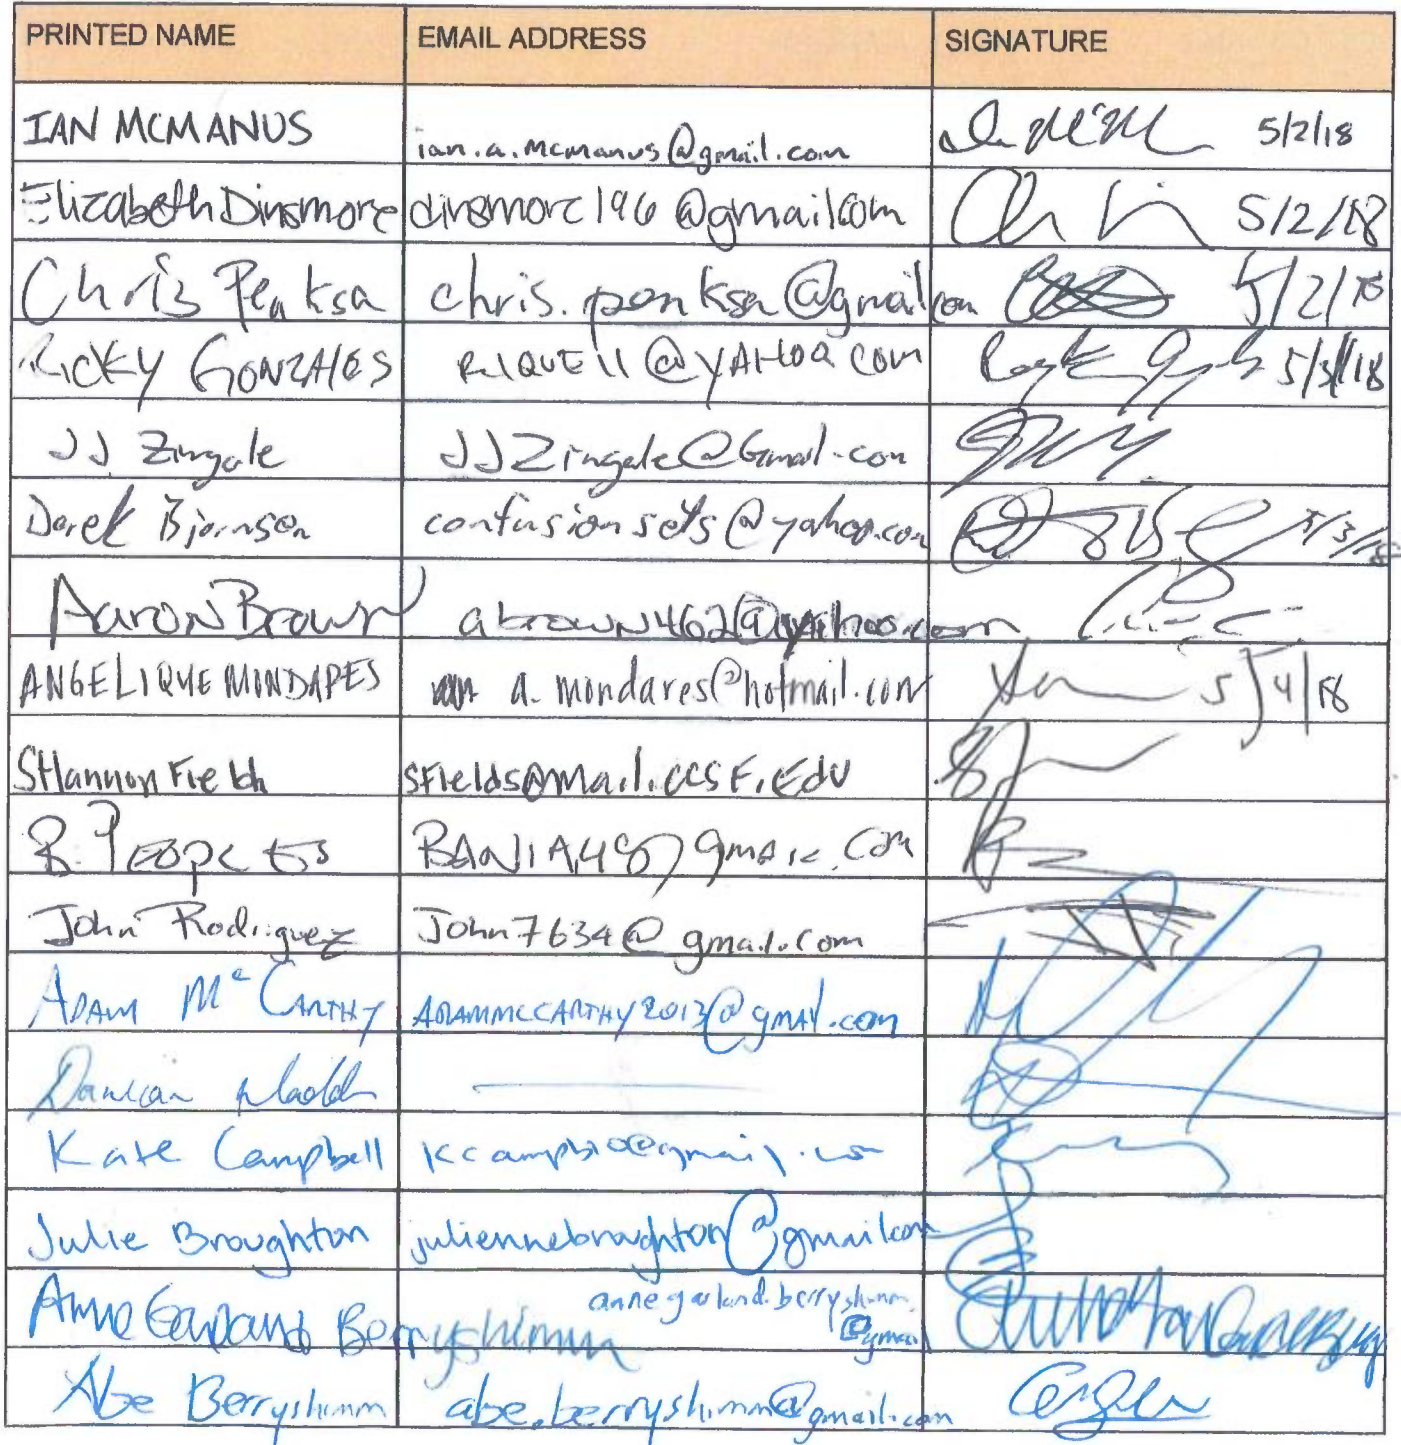 PRINTED NAME EMAIL ADDRESS SIGNATURE
IAN MCMANUS ian.a.mcmanus@gmail.com 5/2/18
Elizabeth Dinsmore dinsmore196@gmailcom 5/2/18
Chris Penksa chris.penksa@gmailcom 5/2/18
RICKY GONZALES RIQUE11@YAHOO COM 5/3/18
JJ Zingale JJZingale@Gmail.com
Derek Bjornson confusionsets@yahoo.com 5/3/18
Aaron Brown abrown462@yahoo.com
ANGELIQUE MONDARES a.mondares@hotmail.com 5/4/18
SHannon Fields SFields@mail.CCSF.EDU
B. Peoples gmail.com
John Rodriguez John7634@gmail.com
ADAM McCARTHY ADAMMCCARTHY2013@gmail.com
Damian
Kate Campbell
Julie Broughton juliennebroughton@gmailcom
Anne Garland Berryshimm annegarland.berryshimm
@gmail
Abe Berryshimm abe.berryshimm@gmail.com